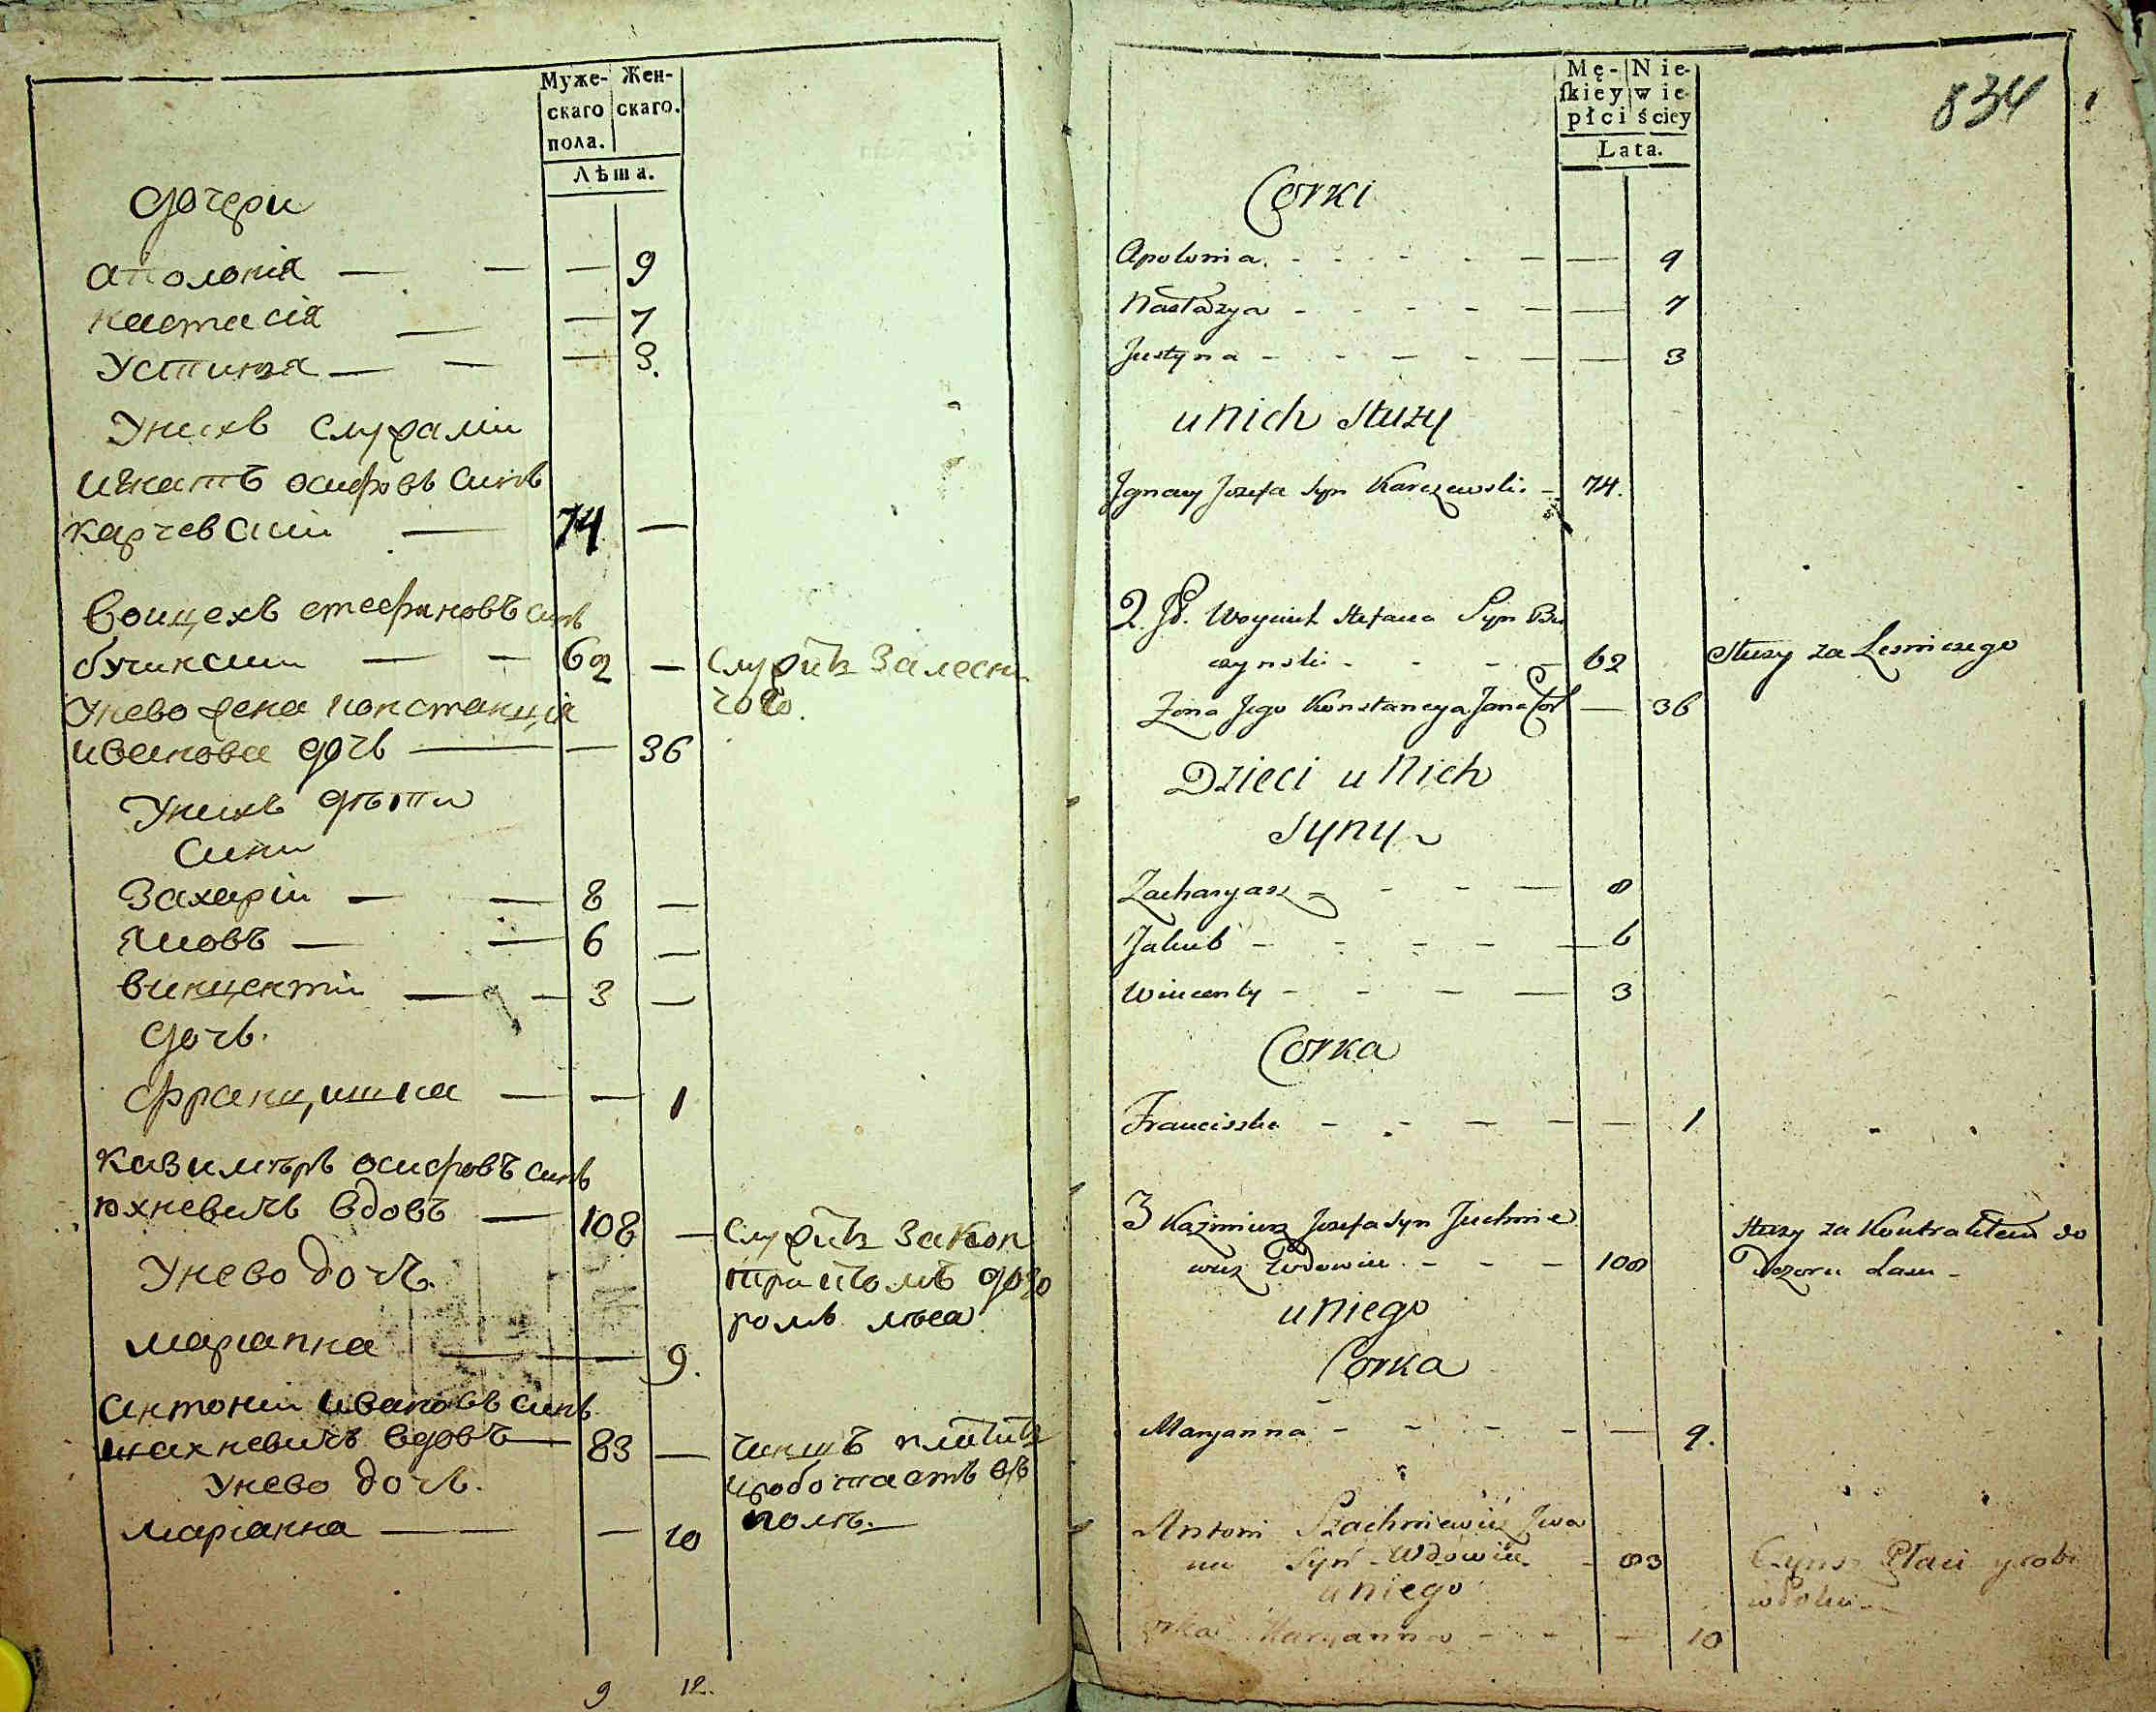 Муже-
скаго
пола.
Жен-
скаго.
Лѣта.
дочери
аполонія — — — 9
настасія — — 7
Устиня — — — 3.
Унихъ служатъ
осифовъ синъ
карчевскій — 74 —
Воицехъ стефановъ синъ
бучинскии — — 62 — Служитъ За лесни
чого.
Унево жена констанция
иванова дочъ — — 36
Унихъ дѣти
Сини
Захарій — — 8 —
Яковъ — — 6 —
винцентій — — 3 —
дочъ.
францишка — — 1
Казимѣръ осифовъ синъ
юхневичъ вдовъ — 108 — Служитъ За кон
трактомъ дозо
ромъ лѣса
Унево дочъ.
маріанна — — 9.
антоній ивановъ синъ
шахневичъ вдовъ — 83 — чиншъ платитъ
иработаетъ въ
полѣ. —
Унево дочъ.
маріанна — — — 10
9 12.
834
Mę-
skiey
płci
Nie-
wie-
ściey
Lata.
Corki
Apolonia. - - - - — — 9
Nastazya - - - - — — 7
Justyna - - - - — — 3
u Nich służy
Ignacy Jozefa syn Karczewski. - 74.
2. Woyciech Stefana Syn Bu
czynski - - - - 62 służy za Lesniczego
Zona Jego Konstancya Jana Cor — 36
Dzieci u Nich
Syny
Zacharyasz - - - — 8
Jakub - - - - — 6
Wincenty - - - — 3
Corka
Franciszka - - - - — — 1
3 Kazimierz Jozefa syn Juchnie
wicz Wdowiec - - - 108
służy za Kontraktem do
Dozoru Lasu -
u Niego
Corka
Maryanna - - - - — 9.
Antoni Szachniewicz Iwa
na Syn Wdowiec - 83
Czynsz Płaci y robi
w Polu —
u Niego
Maryanna - - — 10